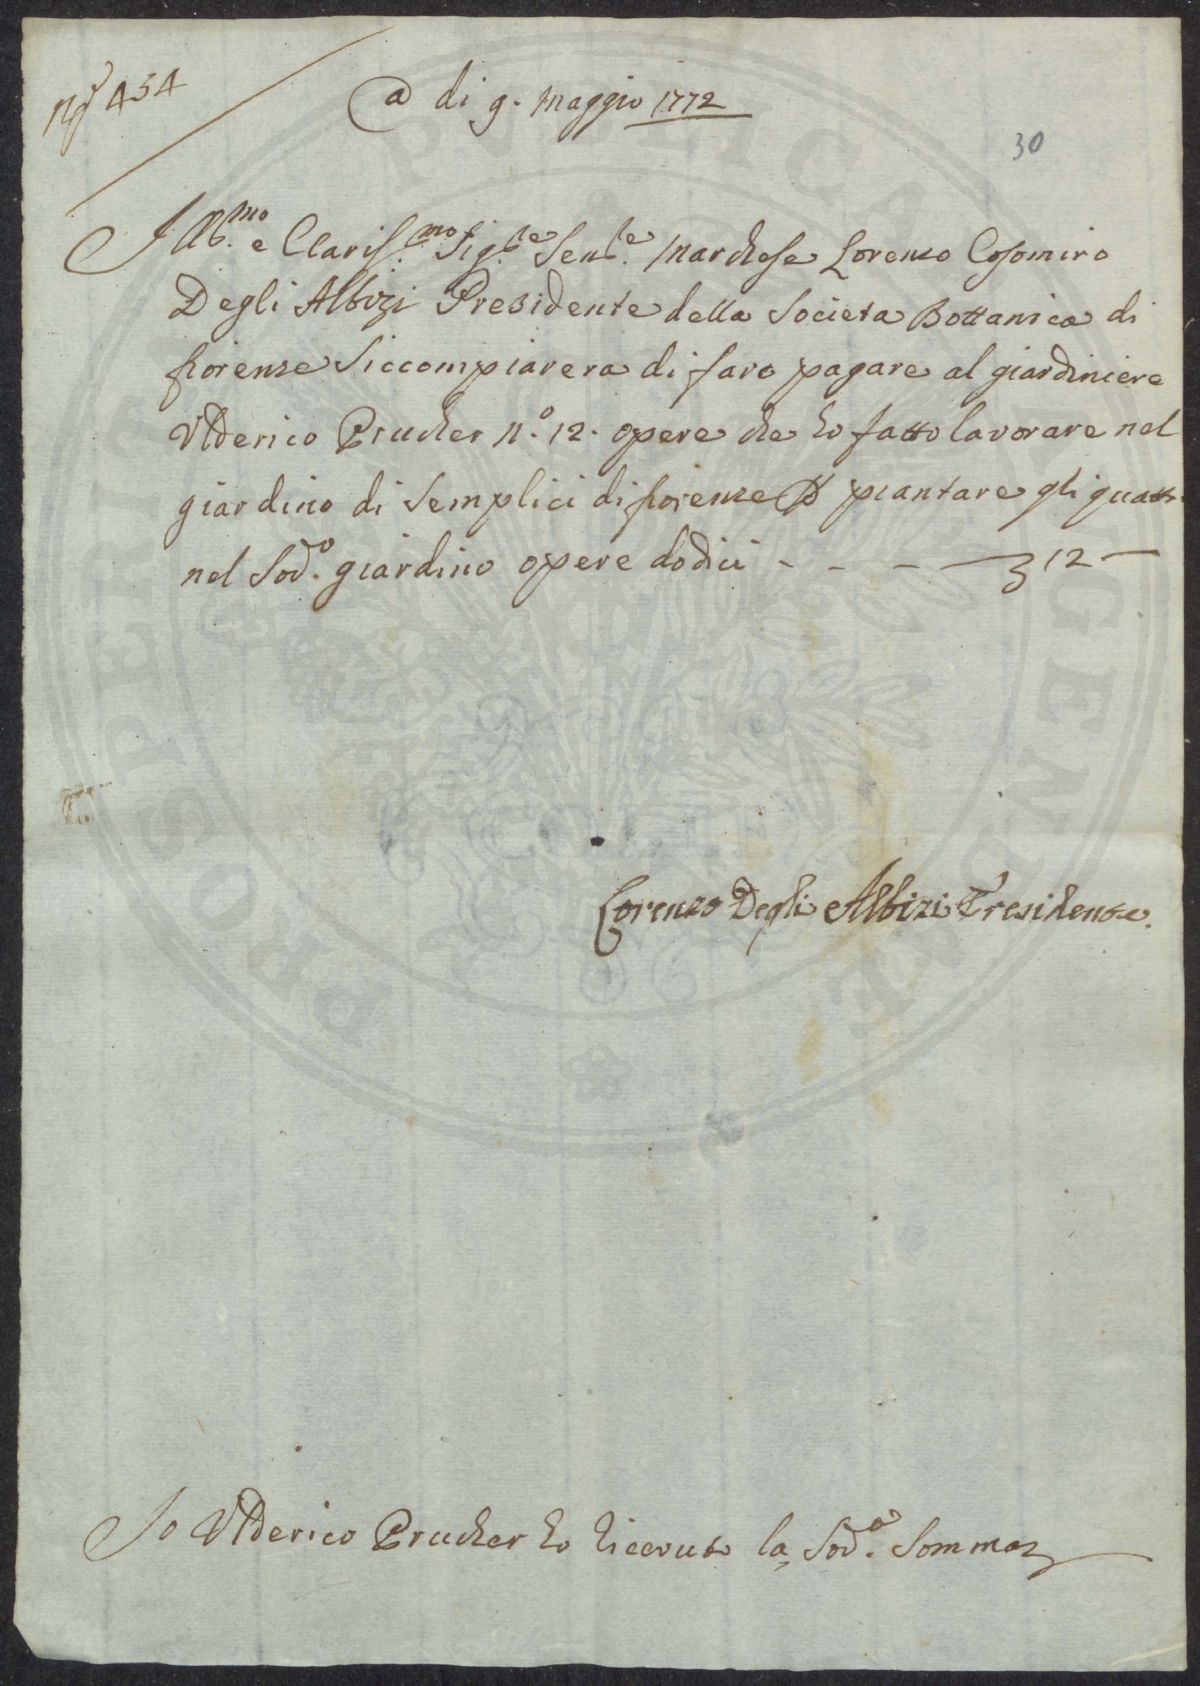 N.º 434
a di 9. Maggio 1772
30
Ill.mo e Clariss.mo Sig.re Sen.re Marchese Lorenzo Cosomiro
Degli Albizi Presidente della Societa Bottanica di
fiorenze Siccompiarera di faro pagare al giardiniere
Ulderico Prucher n.º 12. opere che ho fatto lavorare nel
giardino di Semplici di fiorenze piantare gli
nel Sod.º giardino opere dodici - - - 12 -
Lorenzo Degli Albizi Presidente.
Io Ulderico Prucher ho riceuto la Sod.a Somma
PROSPERITATI PUBLICAE AUGENDAE